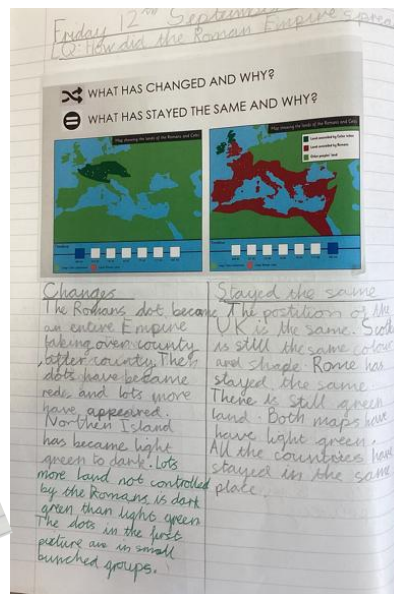 Friday 12th September
LQ: How did the Roman Empire sprea
WHAT HAS CHANGED AND WHY?
WHAT HAS STAYED THE SAME AND WHY?
Map showing the lands of the Romans and Celts
Map showing the lands of the Romans and Celts
Land controlled by Celtic tribes
Land controlled by Romans
Other peoples' land
Changes
The Romans dot become
an entire Empire
taking over county
after county. The
dots have became
red and lots more
have appeared.
Northen Island
has became light
green to dark. lots
more land not controlled
by the Romans is dark
green than light green
The dots in the first
picture are in small
bunched groups.
Stayed the same
The postition of the
UK is the same. Scotl
is still the same colour
and shape Rome has
stayed the same
There is still green
land. Both maps have
have light green.
All the countries have
stayed in the same
place.